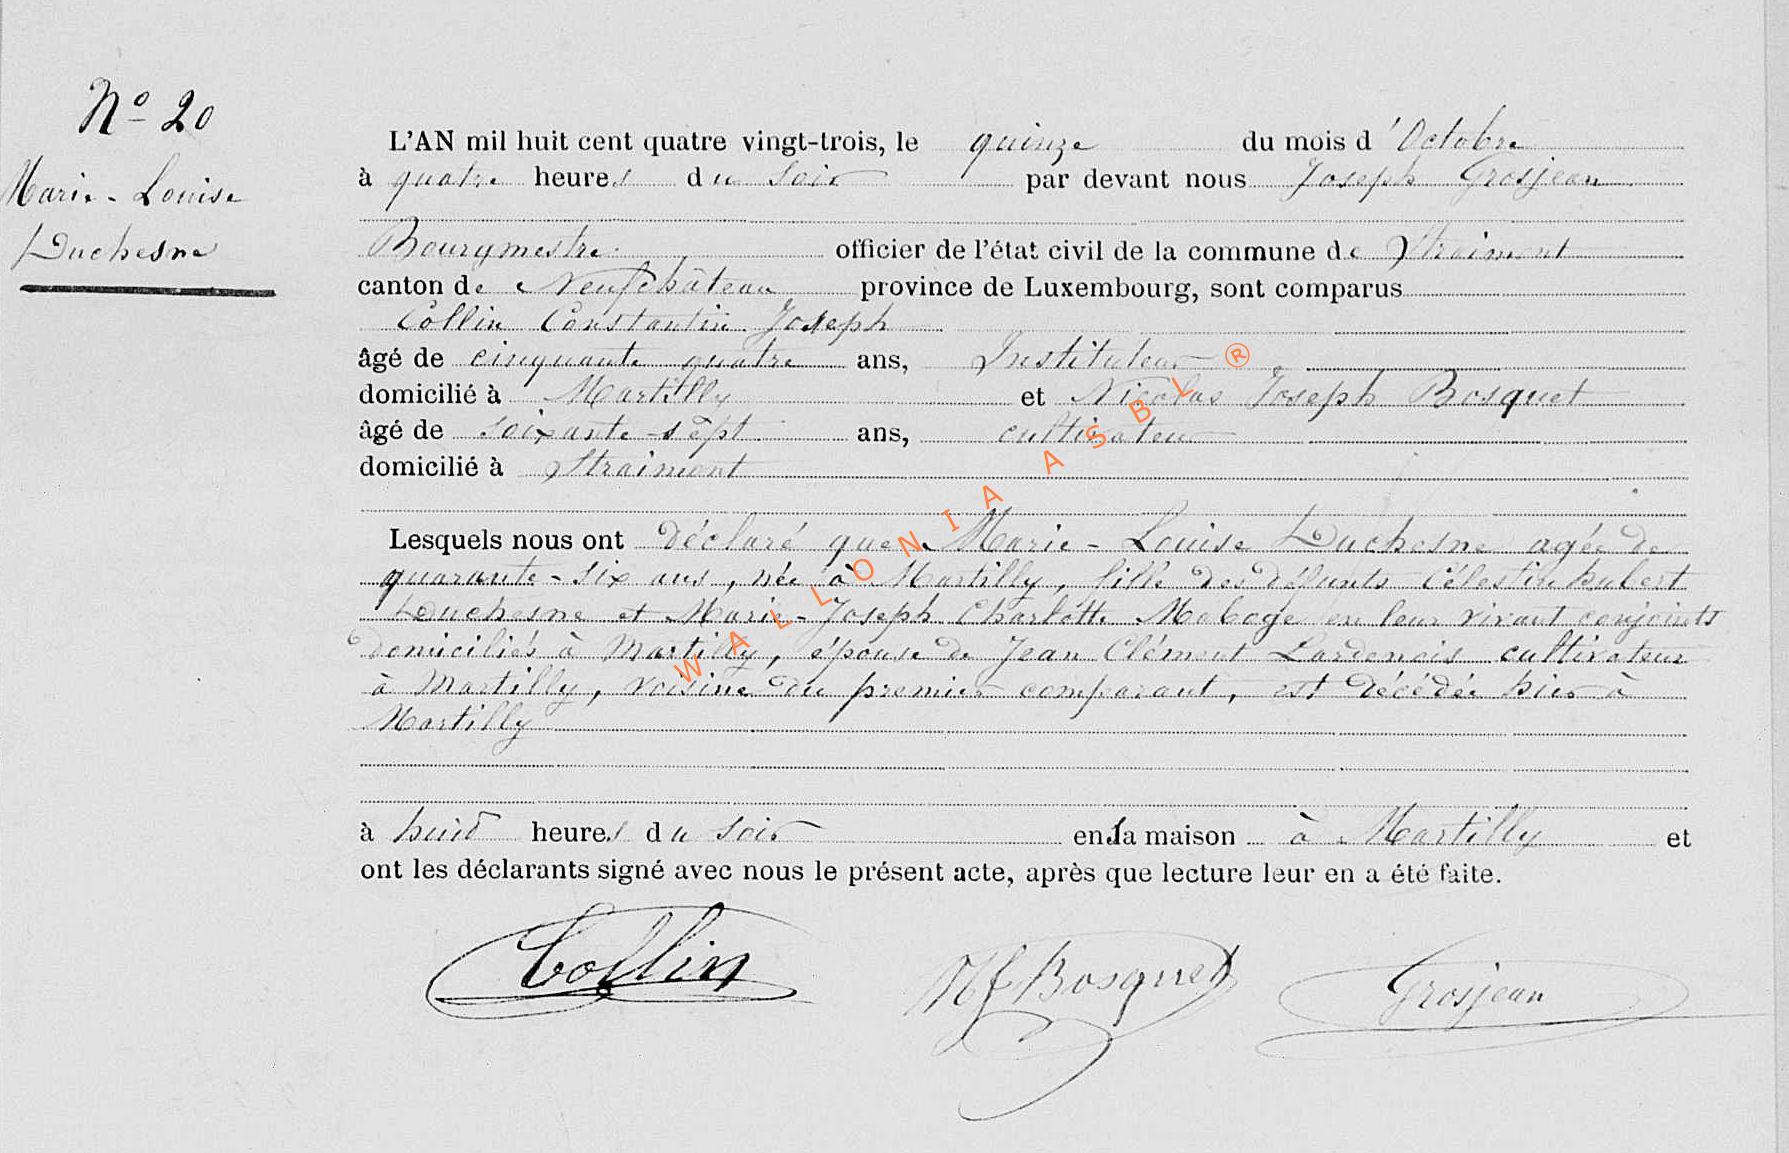 N° 20
Marie-Louise
Duchesne
L'AN mil huit cent quatre vingt-trois, le quinze du mois d'Octobre
à quatre heures du soir par devant nous Joseph Grosjean
Bourgmestre officier de l'état civil de la commune de Straimont
canton de Neufchâteau province de Luxembourg, sont comparus
Collin Constantin Joseph
âgé de cinquante quatre ans, Instituteur
domicilié à Martilly et Nicolas Joseph Bosquet
âgé de soixante-sept ans, cultivateur
domicilié à Straimont
Lesquels nous ont déclaré que Marie-Louise Duchesne agée de
quarante-six ans, née à Martilly, fille des défunts Célestin hubert
Duchesne et Marie-Joseph Charlotte Maboge en leur vivant conjoints
domiciliés à Martilly, épouse de Jean Clément Lardenois cultivateur
à Martilly, voisine du premier comparant, est décédée hier à
Martilly
à huit heures du soir en sa maison à Martilly et
ont les déclarants signé avec nous le présent acte, après que lecture leur en a été faite.
Collin NJ Bosquet Grosjean
WALLONIA ASBL ®